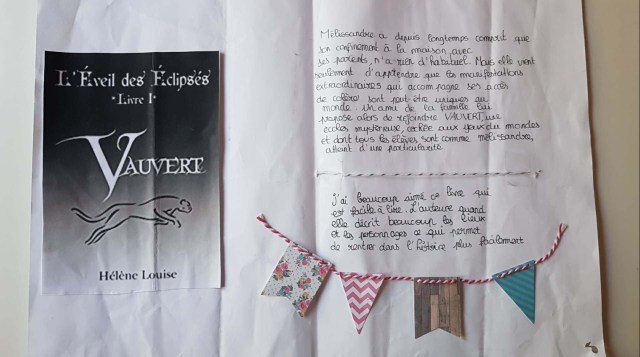 L'Éveil des Éclipsés
*Livre I*
VAUVERT
Hélène Louise
Mélissandre a depuis longtemps compris que
son confinement à la maison, avec
ses parents, n'a rien d'habituel. Mais elle vient
seulement d'apprendre que les manifestations
extraordinaires qui accompagne ses accès
de colère sont peut-être uniques au
monde. Un ami de la famille lui
propose alors de rejoindre VAUVERT, une
école mystérieuse, cachée aux yeux du monde
et dont tous les élèves sont comme mélissandre,
atteint d'une particularité.
J'ai beaucoup aimé ce livre qui
est facile à lire. L'auteure quand
elle décrit beaucoup les lieux
et les personnages ce qui permet
de rentrer dans l'histoire plus facilement